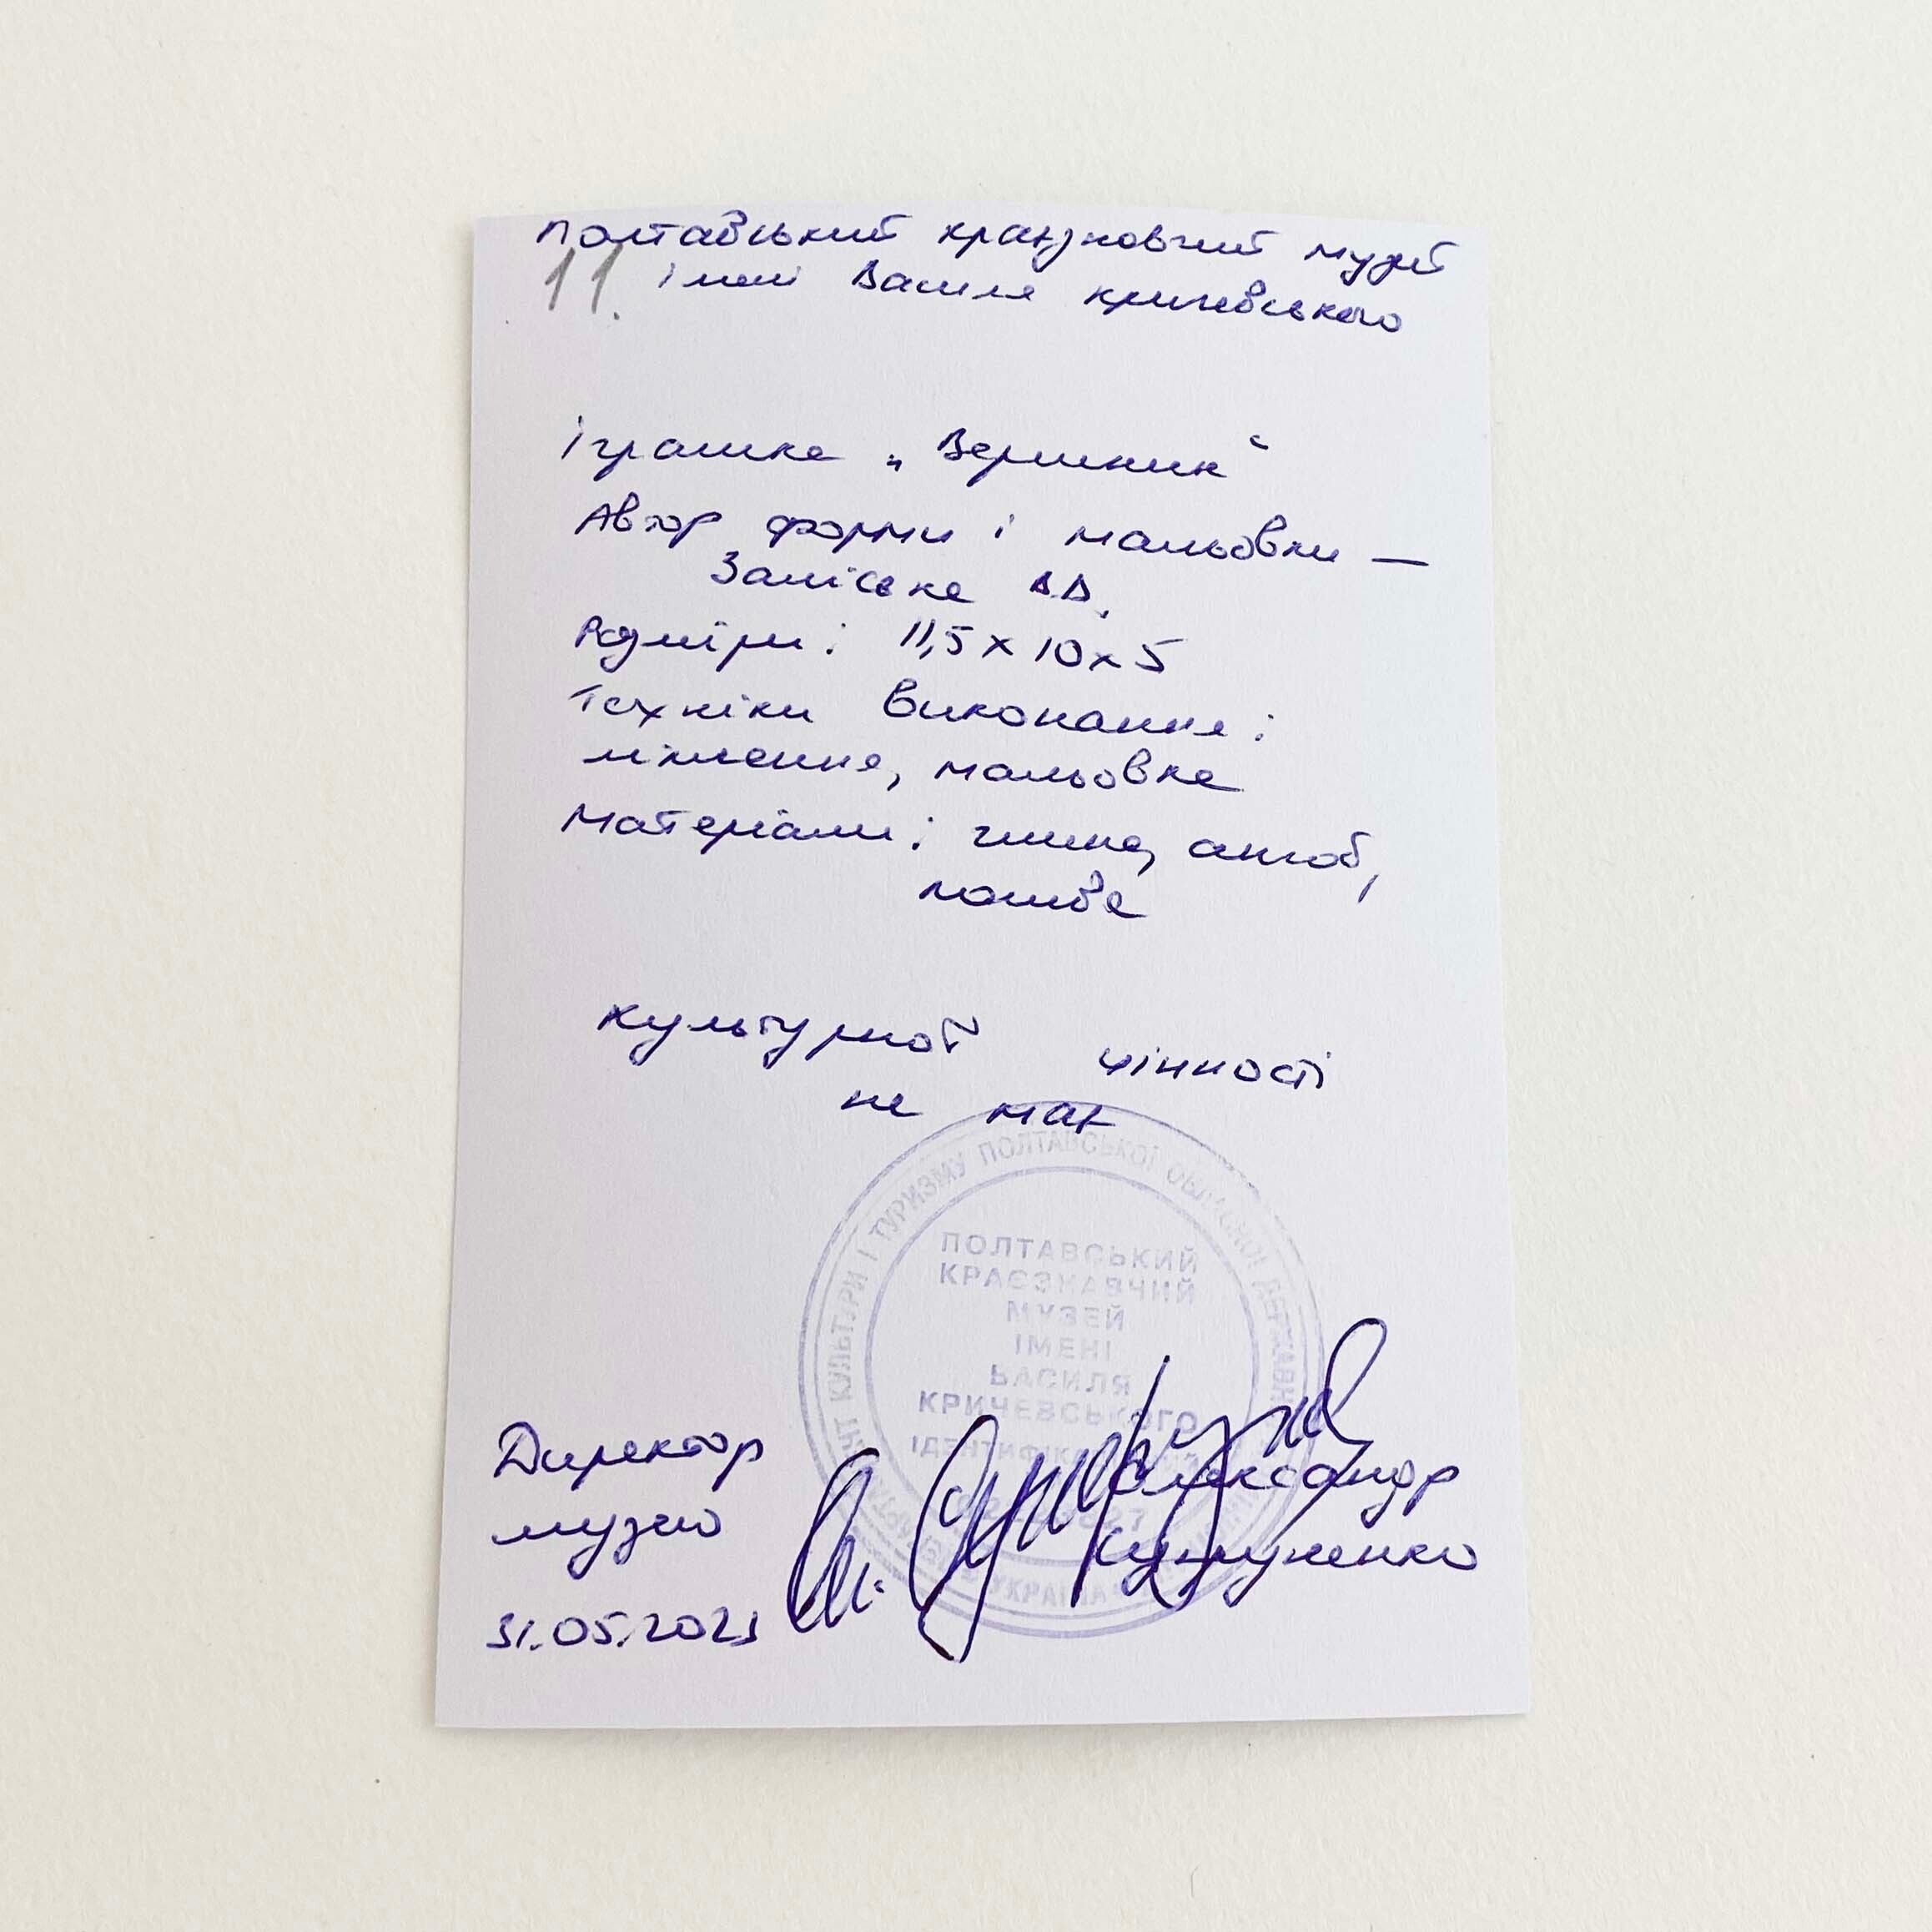 Полтавський краєзнавчий музей
11. імені Василя Кричевського
Іграшка „Вершник“
Автор форми і мальовки —
Заліська В.В.
Розміри: 11,5 х 10 х 5
Техніки виконання:
ліплення, мальовка
Матеріали: глина, ангоб,
полива
Культурної цінності
не має
КУЛЬТУРИ І ТУРИЗМУ ПОЛТАВСЬКОЇ ОБЛАСНОЇ ДЕРЖАВНОЇ
ПОЛТАВСЬКИЙ
КРАЄЗНАВЧИЙ
МУЗЕЙ
ІМЕНІ
ВАСИЛЯ
КРИЧЕВСЬКОГО
УКРАЇНА
Директор
музею
Олександр
Супруненко
31.05.2023